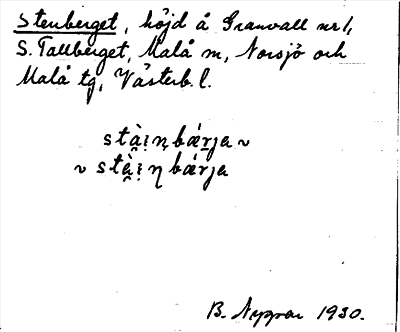 Stenberget, höjd å Granvall nr 1,
S. Tallberget, Malå sn, Norsjö och
Malå tg, Västerb. l.
stài̯n̥bǽrja ~
~ stài̯ŋbǽrja
B. 1930.